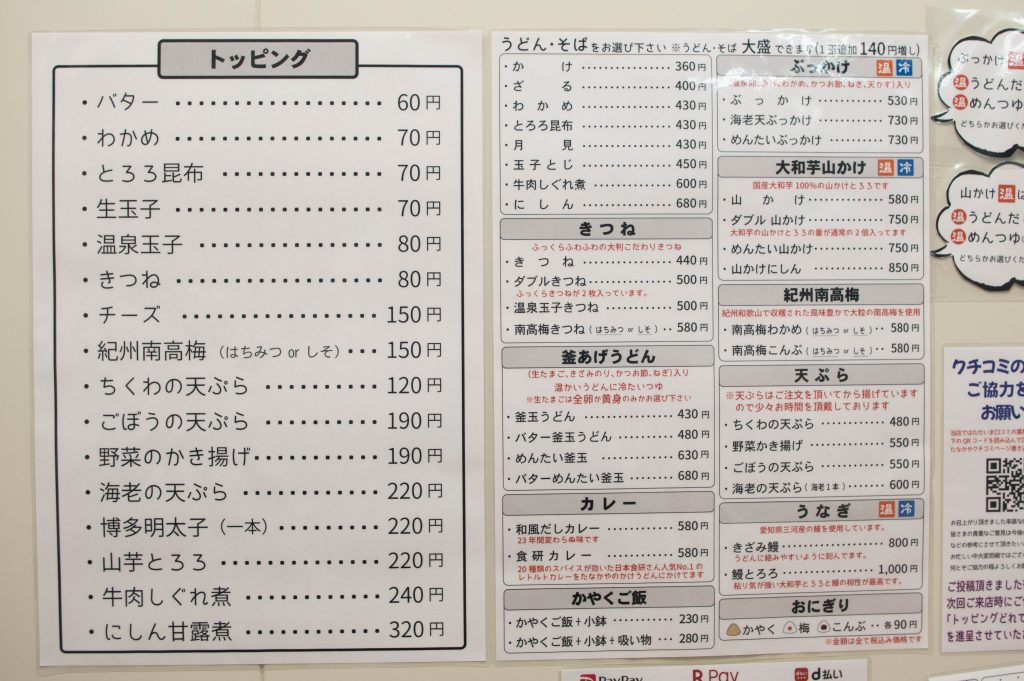 トッピング
・バター ‥‥‥‥‥‥‥‥ 60円
・わかめ ‥‥‥‥‥‥‥‥ 70円
・とろろ昆布 ‥‥‥‥‥‥ 70円
・生玉子 ‥‥‥‥‥‥‥‥ 70円
・温泉玉子 ‥‥‥‥‥‥‥ 80円
・きつね ‥‥‥‥‥‥‥‥ 80円
・チーズ ‥‥‥‥‥‥‥‥ 150円
・紀州南高梅 (はちみつ or しそ)‥ 150円
・ちくわの天ぷら ‥‥‥‥ 120円
・ごぼうの天ぷら ‥‥‥‥ 190円
・野菜のかき揚げ‥‥‥‥ 190円
・海老の天ぷら ‥‥‥‥‥ 220円
・博多明太子 (一本) ‥‥‥ 220円
・山芋とろろ ‥‥‥‥‥‥ 220円
・牛肉しぐれ煮 ‥‥‥‥‥ 240円
・にしん甘露煮 ‥‥‥‥‥ 320円
うどん・そばをお選び下さい ※うどん・そば 大盛 できます(1玉追加 140円増し)
・かけ ‥‥‥‥‥ 360円
・ざる ‥‥‥‥‥ 400円
・わかめ ‥‥‥‥‥ 430円
・とろろ昆布 ‥‥‥‥‥ 430円
・月見 ‥‥‥‥‥ 430円
・玉子とじ ‥‥‥‥‥ 450円
・牛肉しぐれ煮 ‥‥‥‥‥ 600円
・にしん ‥‥‥‥‥ 680円
きつね
ふっくらふわふわの大判こだわりきつね
・きつね ‥‥‥‥‥ 440円
・ダブルきつね‥‥‥‥ 500円
ふっくらきつねが2枚入っています。
・温泉玉子きつね ‥‥‥ 500円
・南高梅きつね(はちみつ or しそ)‥ 580円
釜あげうどん
(生たまご、きざみのり、かつお節、ねぎ)入り
温かいうどんに冷たいつゆ
※生たまごは全卵か黄身のみかお選び下さい
・釜玉うどん ‥‥‥‥ 430円
・バター釜玉うどん ‥‥‥ 480円
・めんたい釜玉 ‥‥‥‥ 630円
・バターめんたい釜玉 ‥‥‥ 680円
カレー
・和風だしカレー ‥‥‥‥ 580円
23年間変わらぬ味です
・食研カレー ‥‥‥‥ 580円
20種類のスパイスが効いた日本食研さん人気No.1の
レトルトカレーをたなかやのかけうどんにかけてます
かやくご飯
・かやくご飯+小鉢 ‥‥‥ 230円
・かやくご飯+小鉢+吸い物 ‥ 280円
ぶっかけ 温 冷
わかめ、かつお節、ねぎ、天かす)入り
・ぶっかけ ‥‥‥‥ 530円
・海老天ぶっかけ ‥‥‥‥ 730円
・めんたいぶっかけ ‥‥‥ 730円
大和芋山かけ 温 冷
国産大和芋100%の山かけとろろです
・山かけ ‥‥‥‥ 580円
・ダブル 山かけ ‥‥‥‥ 750円
大和芋の山かけとろろの量が通常の2倍入ってます
・めんたい山かけ ‥‥‥‥ 750円
・山かけにしん ‥‥‥‥ 850円
紀州南高梅
紀州和歌山で収穫された風味豊かで大粒の南高梅を使用
・南高梅わかめ(はちみつ or しそ)‥ 580円
・南高梅こんぶ(はちみつ or しそ)‥ 580円
天ぷら
※天ぷらはご注文を頂いてから揚げています
ので少々お時間を頂戴しております
・ちくわの天ぷら ‥‥‥‥ 480円
・野菜かき揚げ‥‥‥‥ 550円
・ごぼうの天ぷら ‥‥‥‥ 550円
・海老の天ぷら(海老1本)‥‥ 600円
うなぎ 温 冷
愛知県三河産の鰻を使用しています。
・きざみ鰻‥‥‥‥ 800円
うどんに絡みやすいように刻んでます。
・鰻とろろ ‥‥‥‥ 1,000円
粘り気が強い大和芋とろろと鰻の相性が最高です。
おにぎり
かやく 梅 こんぶ ‥各90円
※金額は全て税込み価格です
ぶっかけ 温
温 うどんだ
温 めんつゆ
どちらかお選びくだ
山かけ 温 は
温 うどんだ
温 めんつゆ
どちらかお選びくだ
クチコミの
ご協力を
お願い
ご投稿頂きました
次回ご来店時にご
「トッピングどれで
を進呈させていた
PayPay
R Pay
d払い